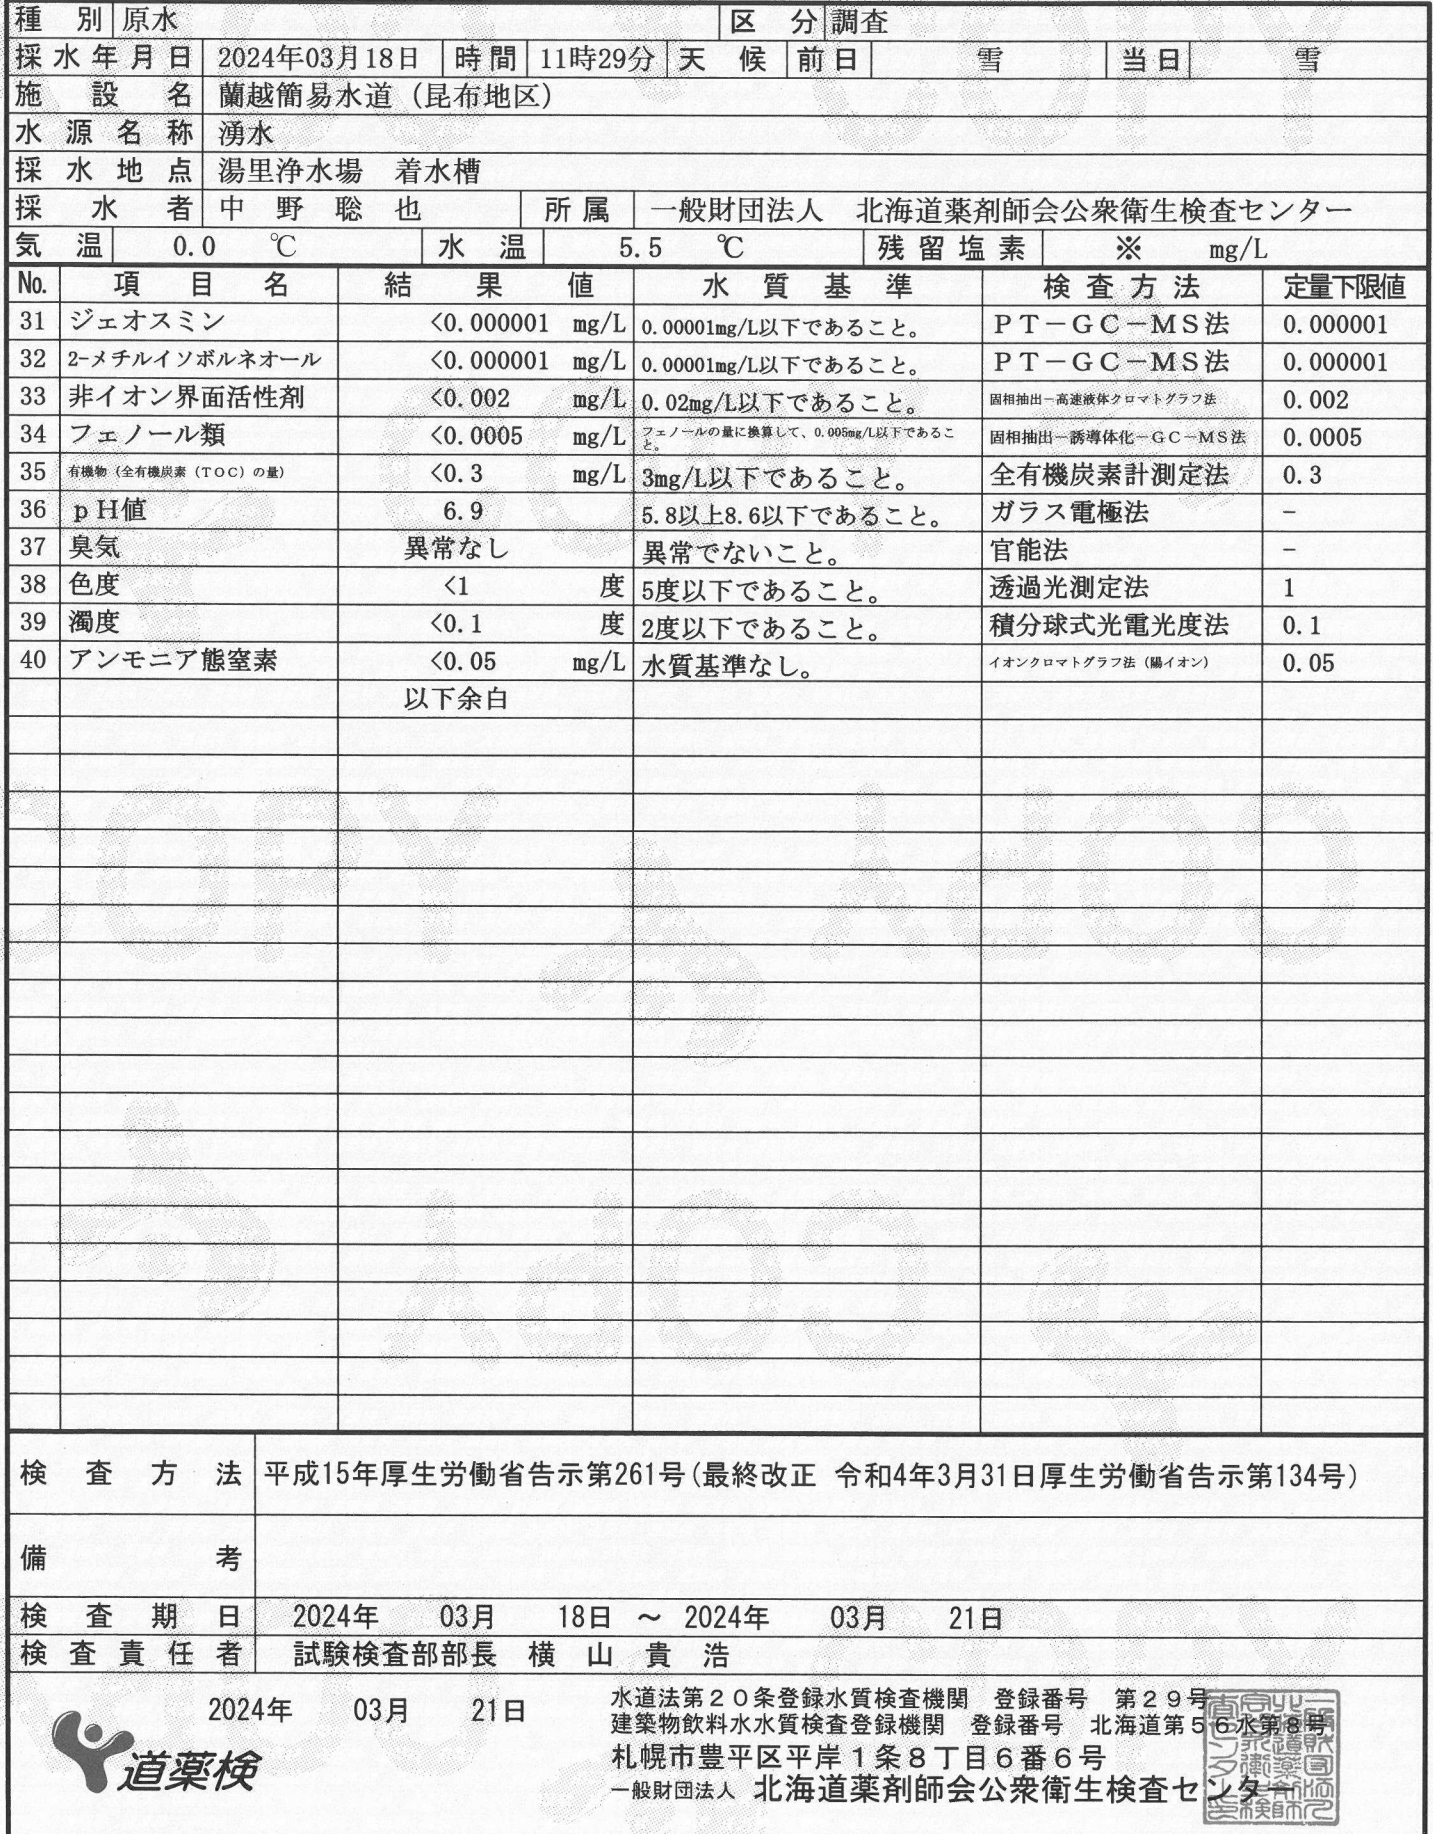 種別 原水 区分 調査
採水年月日 2024年03月18日 時間 11時29分 天候 前日 雪 当日 雪
施設名 蘭越簡易水道（昆布地区）
水源名称 湧水
採水地点 湯里浄水場 着水槽
採水者 中野聡也 所属 一般財団法人 北海道薬剤師会公衆衛生検査センター
気温 0.0 ℃ 水温 5.5 ℃ 残留塩素 ※ mg/L
No. 項目名 結果値 水質基準 検査方法 定量下限値
31 ジェオスミン <0.000001 mg/L 0.00001mg/L以下であること。 ＰＴ－ＧＣ－ＭＳ法 0.000001
32 2-メチルイソボルネオール <0.000001 mg/L 0.00001mg/L以下であること。 ＰＴ－ＧＣ－ＭＳ法 0.000001
33 非イオン界面活性剤 <0.002 mg/L 0.02mg/L以下であること。 固相抽出－高速液体クロマトグラフ法 0.002
34 フェノール類 <0.0005 mg/L フェノールの量に換算して、0.005mg/L以下であるこ
と。 固相抽出－誘導体化－ＧＣ－ＭＳ法 0.0005
35 有機物（全有機炭素（ＴＯＣ）の量） <0.3 mg/L 3mg/L以下であること。 全有機炭素計測定法 0.3
36 ｐＨ値 6.9 5.8以上8.6以下であること。 ガラス電極法 -
37 臭気 異常なし 異常でないこと。 官能法 -
38 色度 <1 度 5度以下であること。 透過光測定法 1
39 濁度 <0.1 度 2度以下であること。 積分球式光電光度法 0.1
40 アンモニア態窒素 <0.05 mg/L 水質基準なし。 イオンクロマトグラフ法（陽イオン） 0.05
以下余白
COPY COPY
COPY
検査方法 平成15年厚生労働省告示第261号(最終改正 令和4年3月31日厚生労働省告示第134号)
備考
検査期日 2024年 03月 18日 ～ 2024年 03月 21日
検査責任者 試験検査部部長 横山貴浩
2024年 03月 21日
道薬検
水道法第２０条登録水質検査機関 登録番号 第２９号
建築物飲料水水質検査登録機関 登録番号 北海道第５６水第８号
札幌市豊平区平岸１条８丁目６番６号
一般財団法人 北海道薬剤師会公衆衛生検査センター